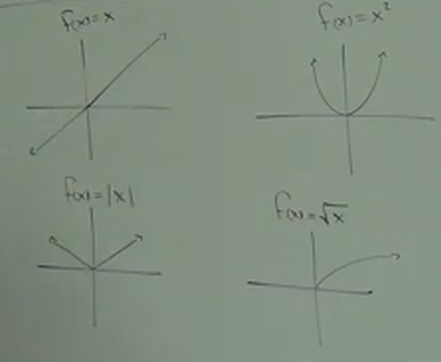 f(x)=x
f(x)=x²
f(x)=|x|
f(x)=√x